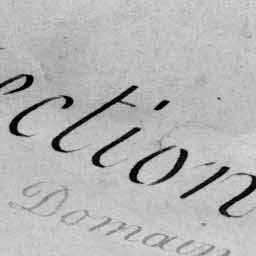 ection
Domain